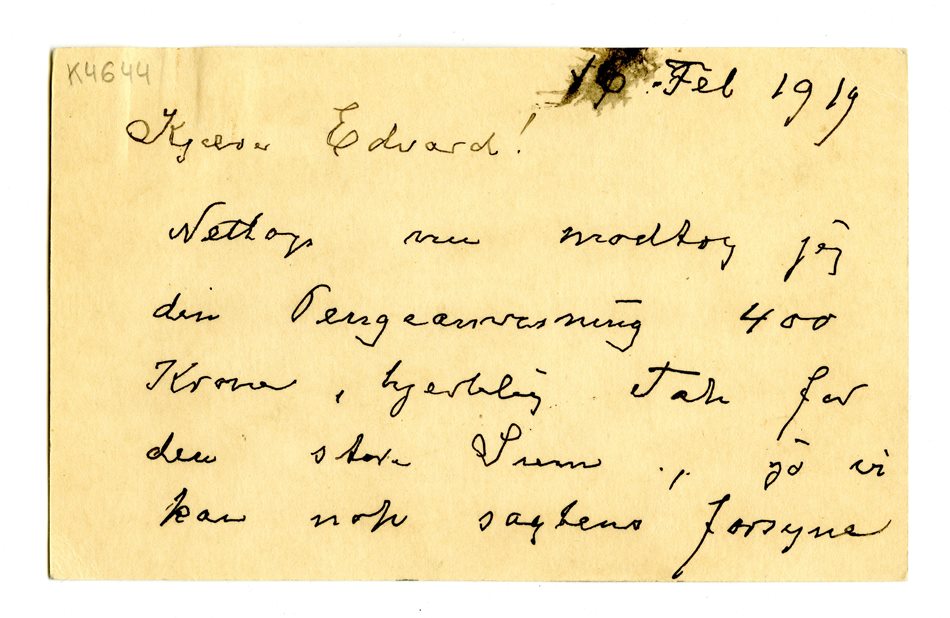 K4644
16 Feb 1919
Kjære Edvard!
Nettop nu modtog jeg
din Pengeanvisning 400
Kroner, hjertelig Tak for
den store Sum., jo vi
kan nok sagtens forsyne